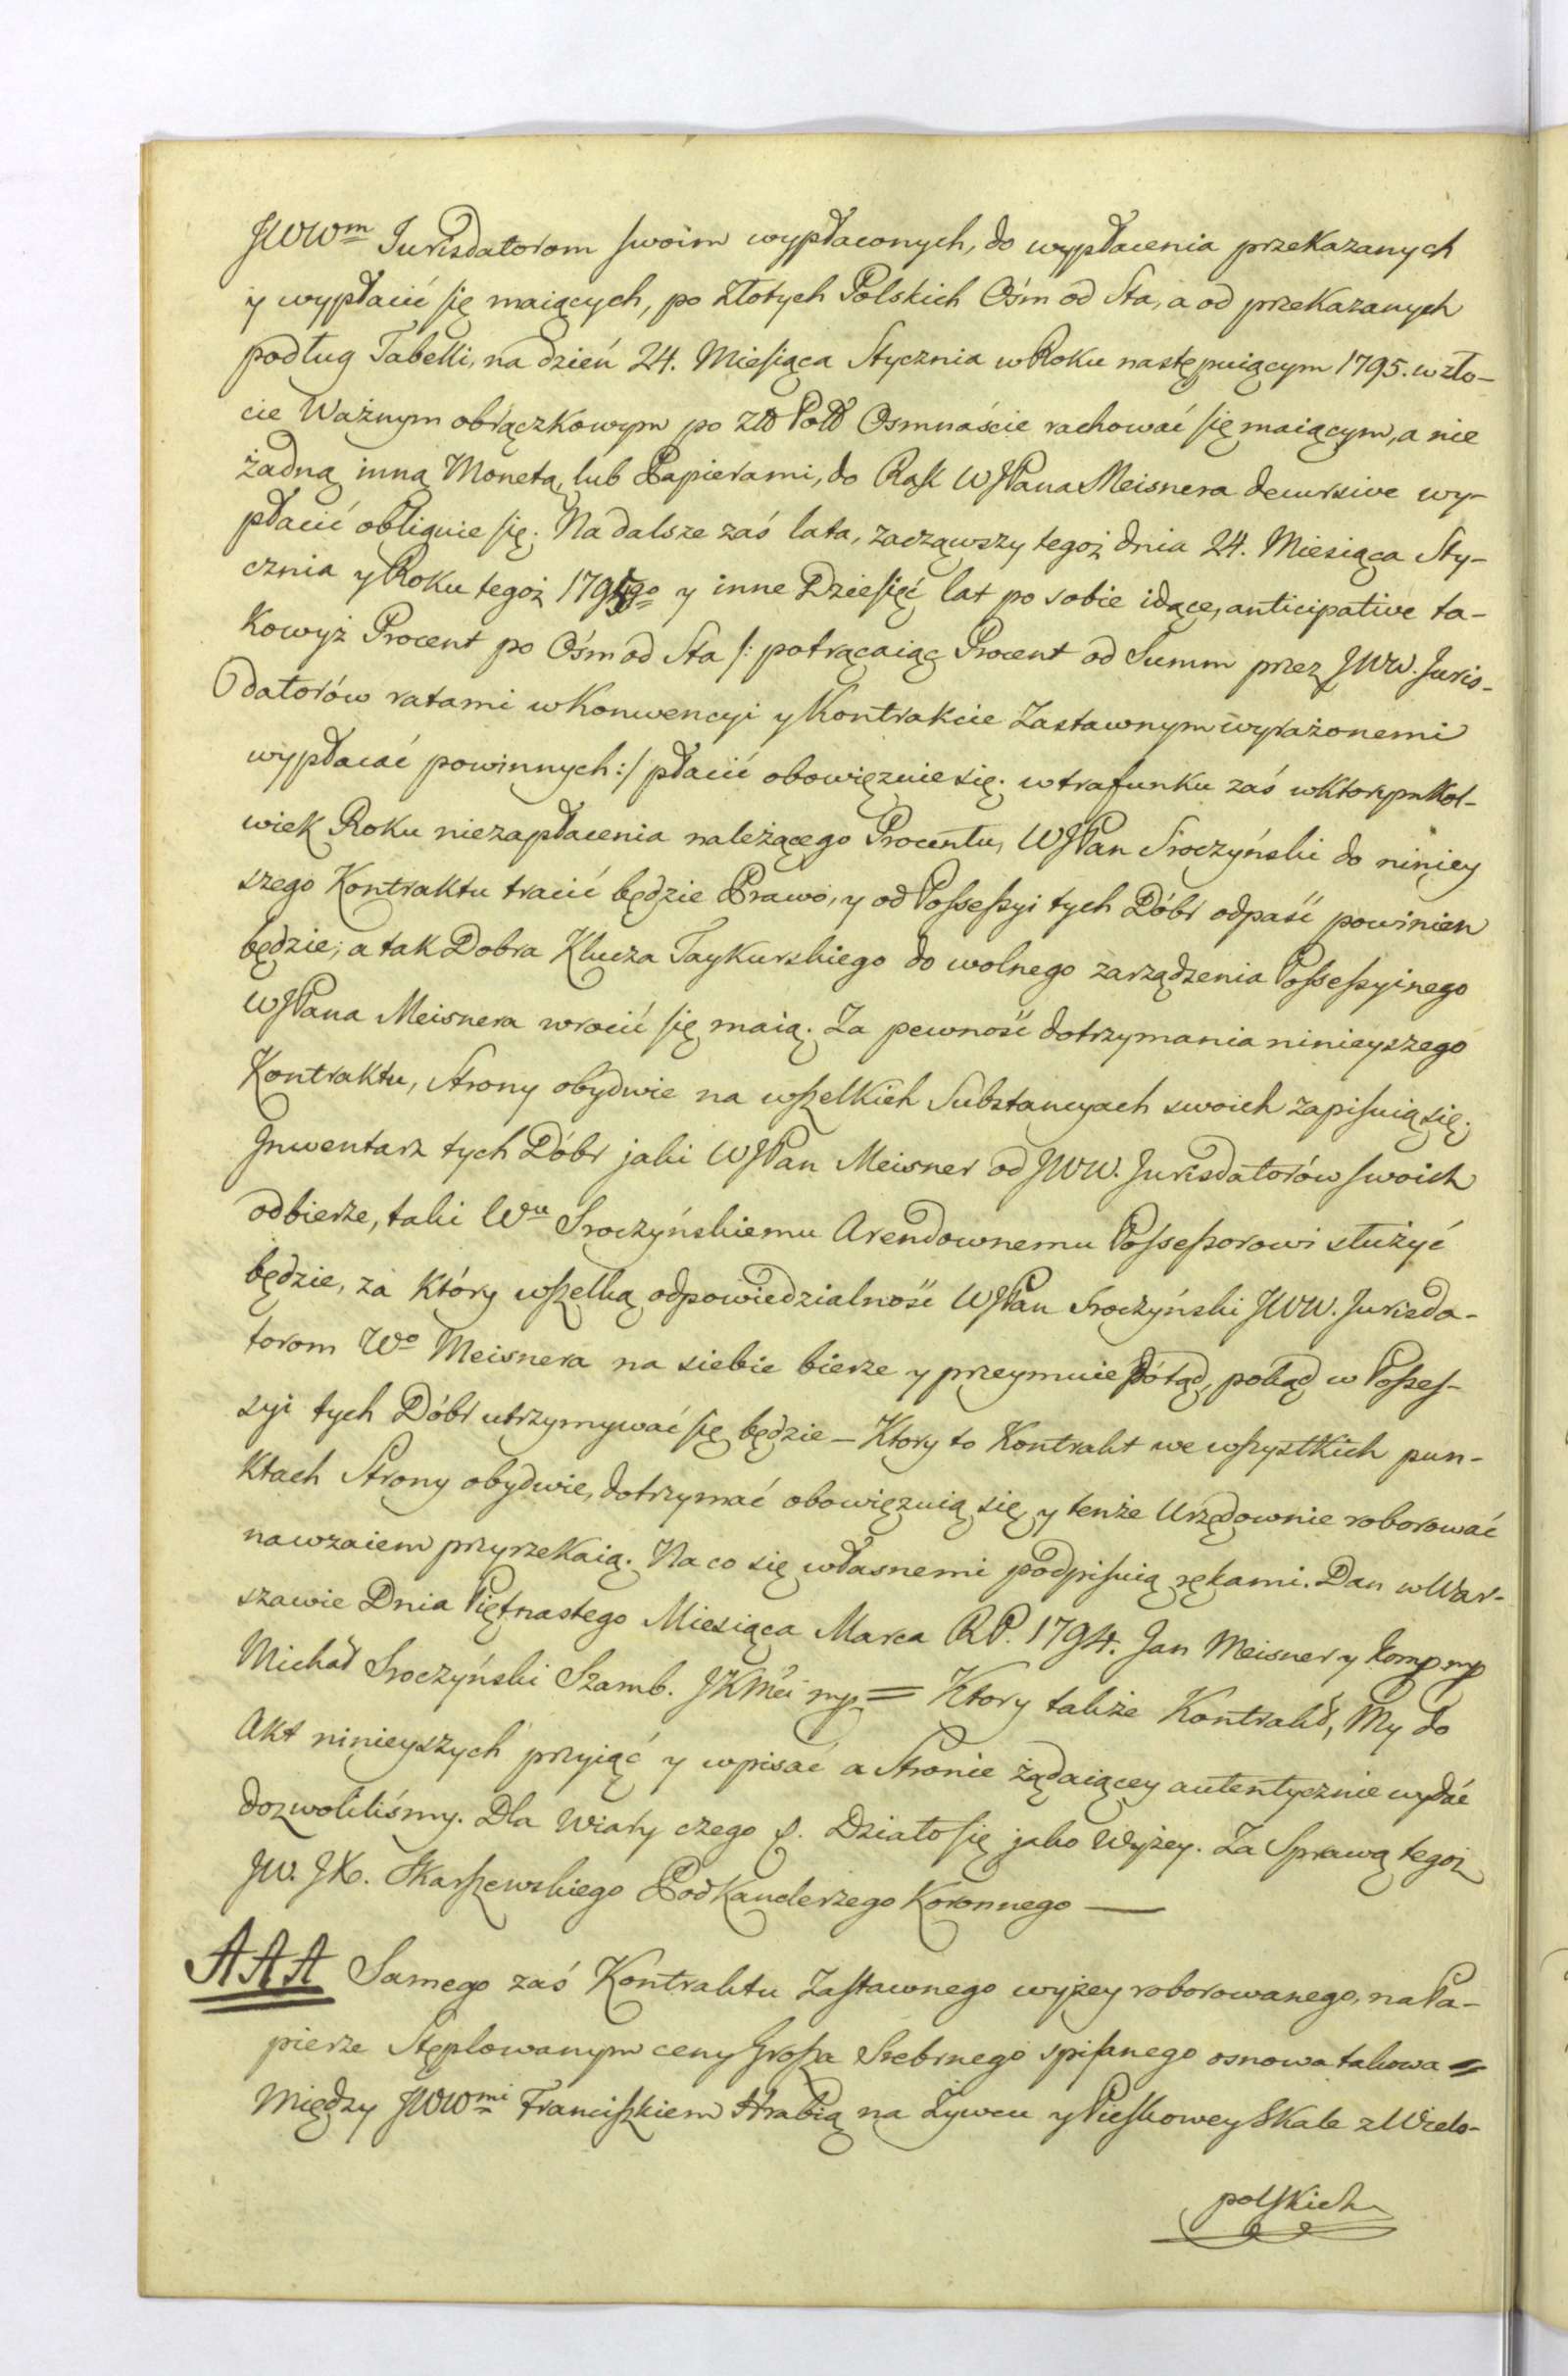 JWW<sup>m</sup> Jurisdatorom swoim wypłaconych, do wypłacenia przekazanych
y wypłacić się maiących, po złotych Polskich Ośm od Sta, a od przekazanych
podług Tabelli, na dzień 24. Miesiąca Stycznia w Roku następuiącym 1795. w zło-
cie Ważnym obrączkowym po Złł Poll Osmnaście rachować się maiącym, a nie
żadną inną Monetą, lub Papierami, do Rąk WJPana Meisnera decursive wy-
płacić obliguie się. Na dalsze zaś lata, zacząwszy tegoż dnia 24. Miesiąca Sty-
cznia y Roku tegoż 1795<sup>go</sup> y inne Dziesięć lat po sobie idące, anticipative ta-
kowyż Procent po Ośm od Sta /: potrącaiąc Procent od Summ przez JWW. Juris-
datorów ratami w Konwencyi y Kontrakcie Zastawnym wyrażonemi
wypłacać powinnych :/ płacić obowięzuie się. w trafunku zaś w ktorym kol-
wiek Roku niezapłacenia należącego Procentu, WJPan Sroczyński do niniey
szego Kontraktu tracić będzie Prawo, y od Possessyi tych Dóbr odpaść powinien
będzie; a tak Dobra Klucza Taykurskiego do wolnego zarządzenia Possessyinego
WJPana Meisnera wrocić się maią. Za pewność dotrzymania ninieyszego
Kontraktu, Strony obydwie na wszelkich Substancyach swoich zapisuią się.
Jnwentarz tych Dóbr jaki WJPan Meisner od JWW. Jurisdatorów swoich
odbierze, taki W<sup>u</sup> Sroczyńskiemu Arendownemu Possessorowi służyć
będzie, za który wszelką odpowiedzialność WJPan Sroczyński JWW. Jurisda-
torom W<sup>o</sup> Meisnera na siebie bierze y przeymuie Pótąd, pókąd w Posses-
syi tych Dóbr utrzymywać się będzie – Ktory to Kontrakt we wszystkich pun-
ktach Strony obydwie, dotrzymać obowięzuią się, y tenże Urzędownie roborować
nawzaiem przyrzekaią. Na co się własnemi podpisuią rękami. Dan w War-
szawie Dnia Piętnastego Miesiąca Marca RP. 1794. Jan Meisner y komp mp
Michał Sroczyński Szamb. JKMći mp = Ktory takiże Kontrakt, My do
Akt ninieyszych przyiąć y wpisać a Stronie żądaiącey autentycznie wydać
dozwoliliśmy. Dla wiary czego &. Działo się jako Wyżey. Za Sprawą tegoż
JW. JX. Skarszewskiego PodKanclerzego Koronnego —
AAA Samego zaś Kontraktu Zastawnego wyżey roborowanego, na Pa-
pierze Stęplowanym ceny Grosza Srebrnego spisanego osnowa takowa =
Między JWW<sup>mi</sup> Franciszkiem Hrabią na Żywcu y Pieskowey Skale z Wielo-
polskich